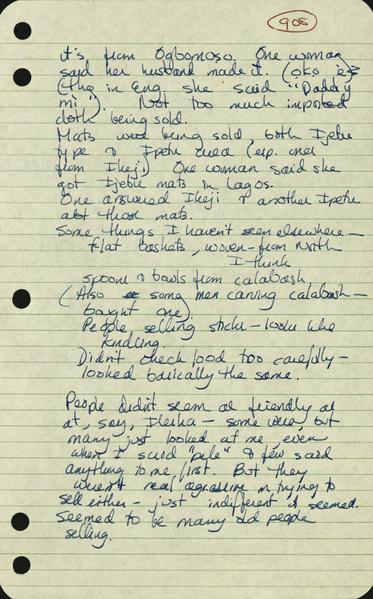 908
it's from Ogbomoso. One woman
said her husband made it. (ọkọ
(tho in Eng. she said "Daddy
mi"). Not too much imported
cloth being sold.
Mats were being sold, both Ijebu
type & Ipetu area (esp. ones
from Ikeji) One woman said she
got Ijebu mats in Lagos.
One answered Ikeji & another Ipetu
abt those mats.
Some things I haven't seen elsewhere —
flat baskets, woven - from North
I think
spoons & bowls from calabash
(Also some men carving calabash —
bought one).
People selling sticks - looks like
kindling.
Didn't check food too carefully -
looked basically the same.
People didn't seem as friendly as
at, say, Ilesha - some were, but
many just looked at me, even
when I said "pẹlẹ" & few said
anything to me first. But they
weren't real agressive in trying to
sell either - just indifferent it seemed.
Seemed to be many old people
selling.